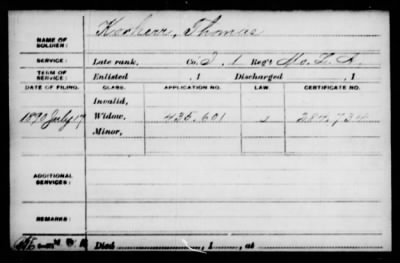 NAME OF SOLDIER: Korherr, Thomas
SERVICE: Late rank, Co. I, 1 Reg't Mo. L. A.
TERM OF SERVICE: Enlisted , 1 Discharged , 1
DATE OF FILING. CLASS. APPLICATION NO. LAW. CERTIFICATE NO.
Invalid,
1890 July 17 Widow, 435.601 284.734
Minor,
ADDITIONAL SERVICES:
REMARKS:
Died , 1 , at